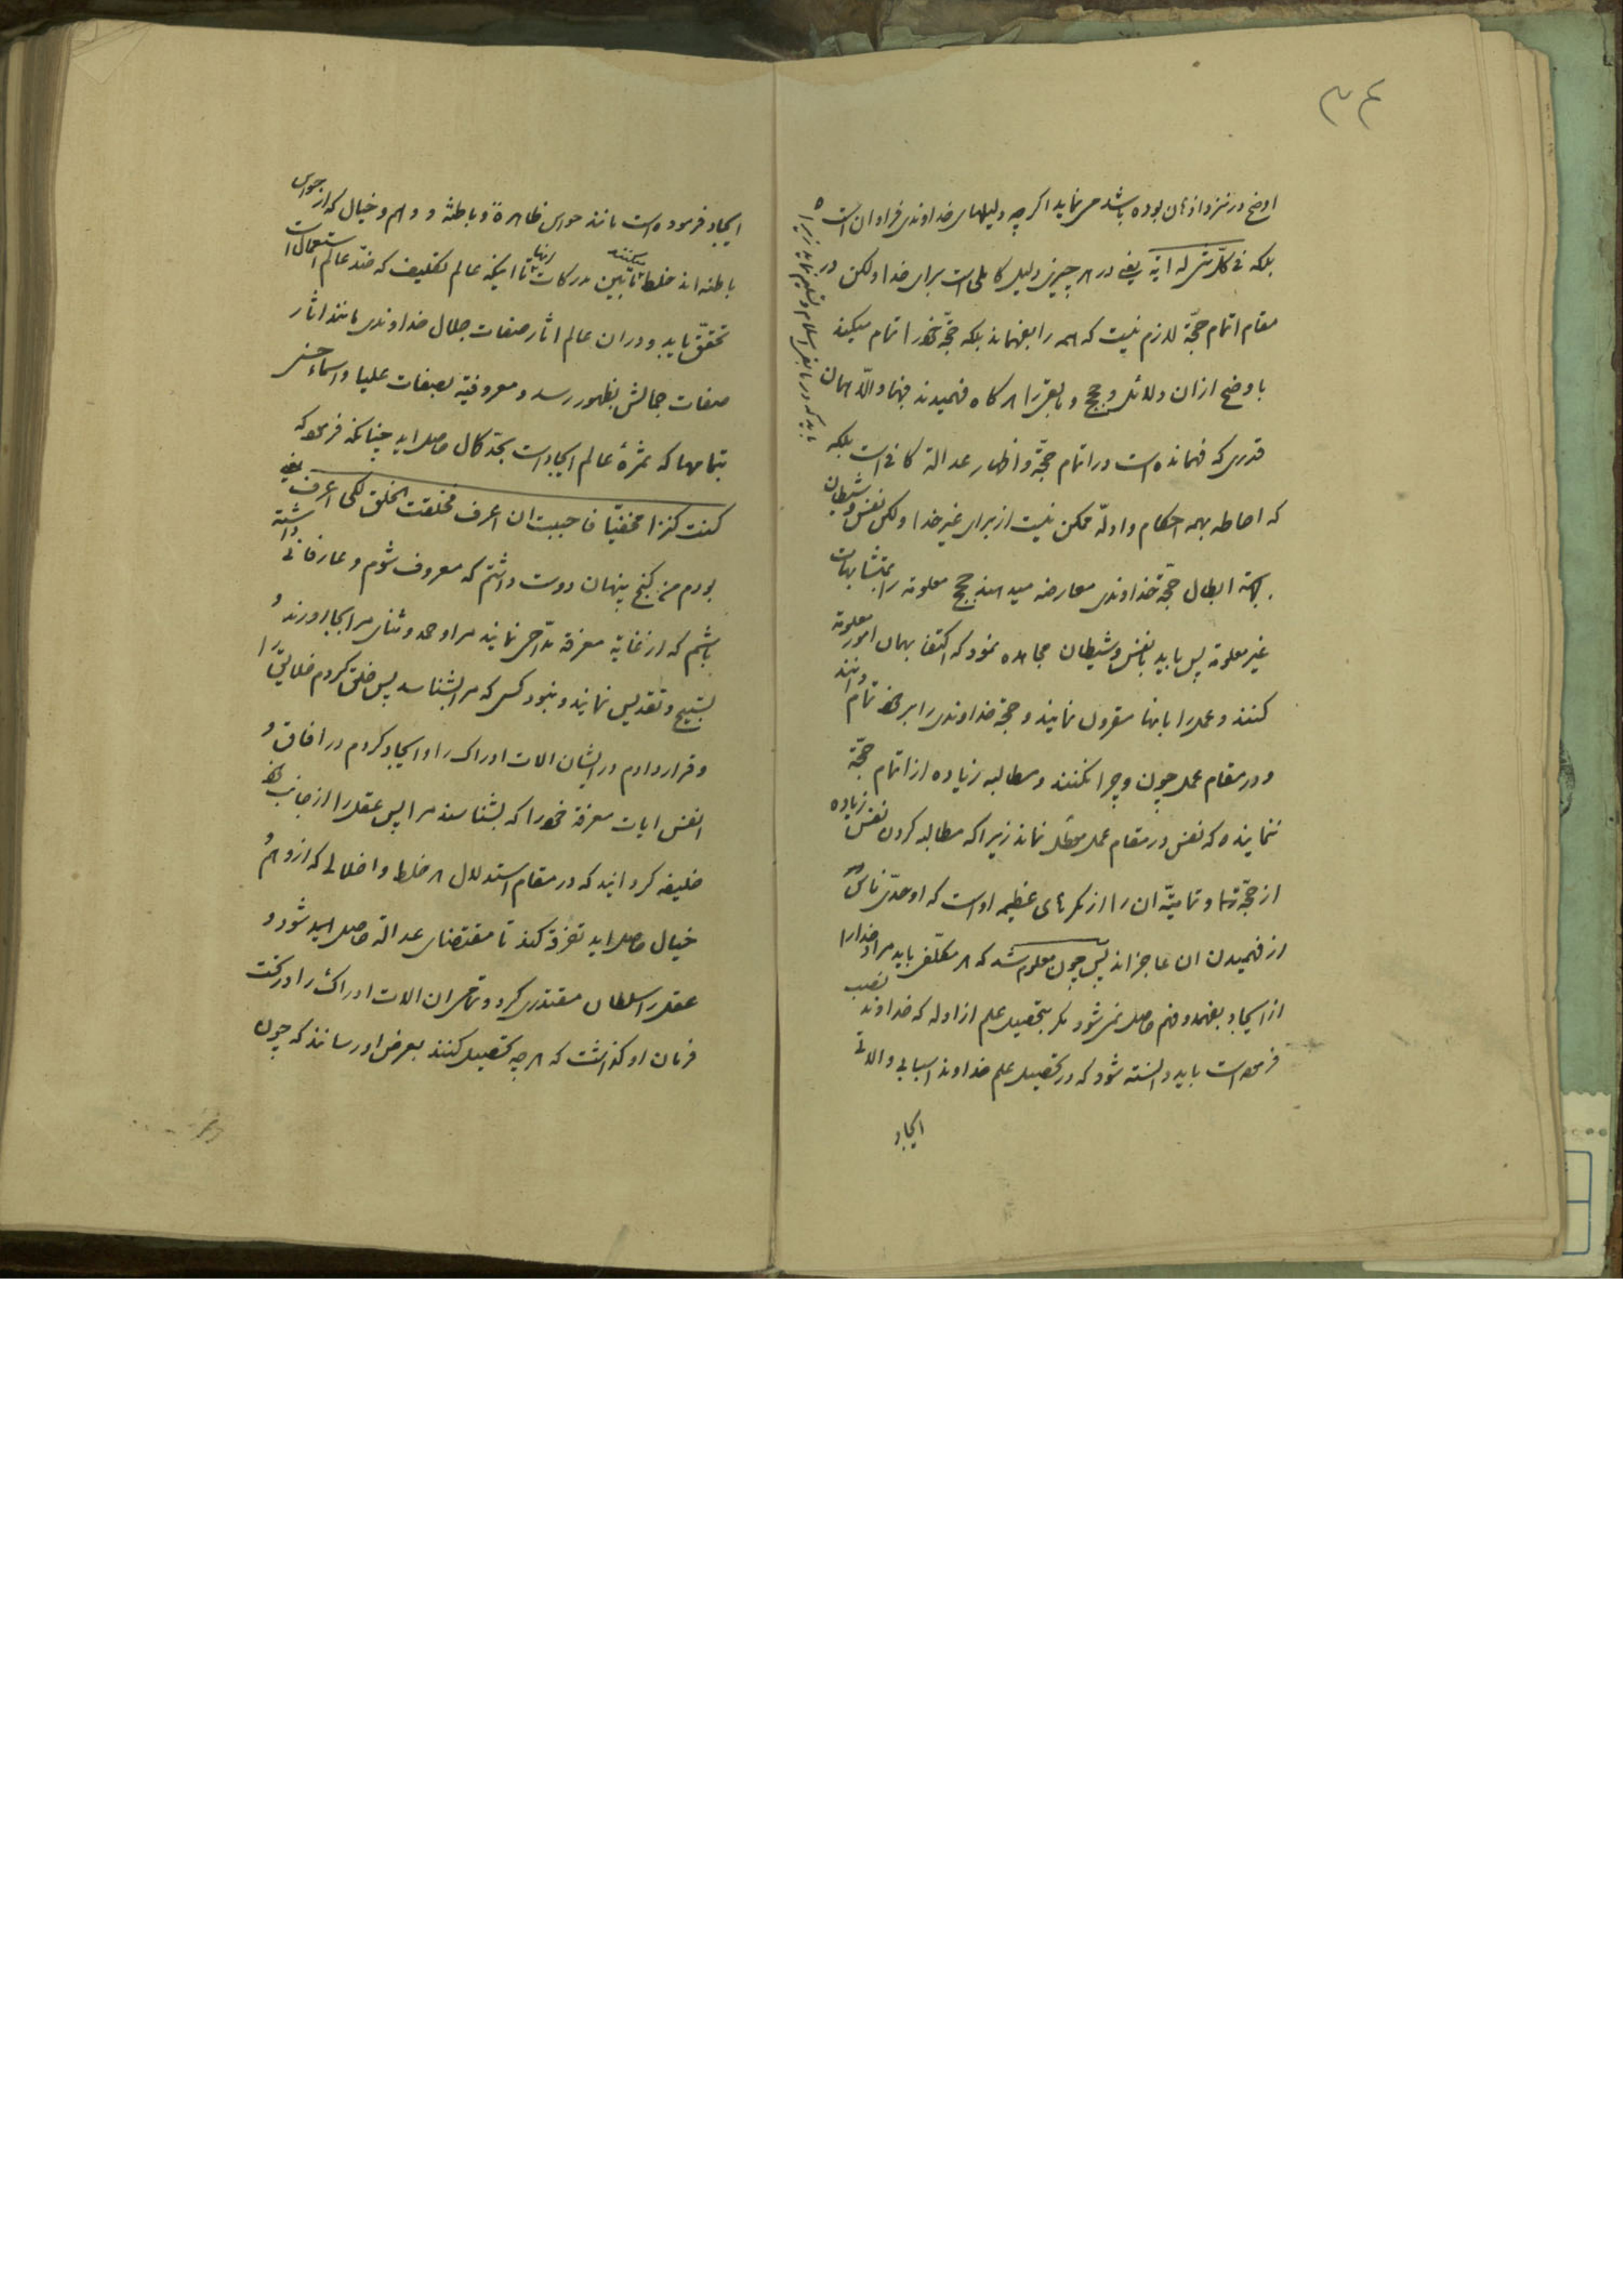 ۳۴
اوضح در نزد اذهان بوده باشد می نماید اکرچه دلیلهای خداوندی فراوان است
بلکه فی کل شیء له آیة یعنی در هر چیزی دلیل کاملی است برای خدا ولکن در
مقام اتمام حجّة لازم نیست که همه را بفهماند بلکه حجّة خود را تمام میکند
باوضح ازان دلائل و حجج و مابقی را هر کاه فهمیدند فبها والّا همان
قدری که فهمانده است در اتمام حجّة و اظهار عدالة کافی است بلکه
باید که در مابقی اسلام و تسلیم نماید زیرا
که احاطه بهمه احکام و ادلّه ممکن نیست از برای غیر خدا ولکن نفس و شیطان
بجهة ابطال حجّة خداوندی معارضه میدهند حجج معلومه را بمتشابهات
غیر معلومه پس باید با نفس و شیطان مجاهده نمود که اکتفا بهمان امور معلومه
کنند و عمل را بانها مقرون نمایند و حجة خداوندی را بر خود تمام دانند
و در مقام عمل چون و چرا نکنند و مطالبه زیاده از اتمام حجّة
ننمایند که نفس در مقام عمل معطّل نماند زیرا که مطالبه کردن نفس زیاده
از حجّة را و تمامیّة ان را از مکرهای عظیمه او است که اوحدی ناس
از فهمیدن ان عاجزاند پس چون معلوم شد که هر مکلّفی باید مراد خدا را
از ایجاد بفهمد و فهم حاصل نمی شود مکر بتحصیل علم از ادله که خداوند نصب
فرموده است باید دانسته شود که در تحصیل علم خداوند اسبابی و الاتی
ایجاد
ایجاد فرموده است مانند حواس ظاهرة و باطنة و وهم و خیال که از حواس
باطنه اند خلط میکنند مابین مدرکات انها تا اینکه عالم تکلیف که ضدّ عالم استعمال است
تحقق یابد و دران عالم اثار صفات جلال خداوندی مانند اثار
صفات جمالش بظهور رسد و معروفیة بصفات علیا و اسماء حسنی
بتمامها که ثمرهٔ عالم ایجاد است بحدّ کمال حاصل اید چنانکه فرموده
کنت کنزا مخفیّا فاحببت ان اعرف فخلقت الخلق لکی اعرف یعنی
بودم من کنج پنهان دوست داشتم که معروف شوم و عارفانی داشته
باشم که از غایة معرفة مدّاحی نمایند مرا و حمد و ثنای مرا بجا اورند و
تسبیح و تقدیس نمایند و نبود کسی که مرا بشناسد پس خلق کردم خلایق را
و قرار دادم در ایشان الات ادراک را و ایجاد کردم در افاق و
انفس ایات معرفة خود را که بشناسند مرا پس عقل را از جانب خود
خلیفه کردانید که در مقام استدلال هر خلط و اخلالی که از وهم و
خیال حاصل اید تفرقه کند تا مقتضای عدالة حاصل اید شود و
عقل را سلطان مقتدری کرد و تمامی ان الات ادراک را در تحت
فرمان او کذاشت که هر چه تحصیل کنند بعرض او رسانند که چون